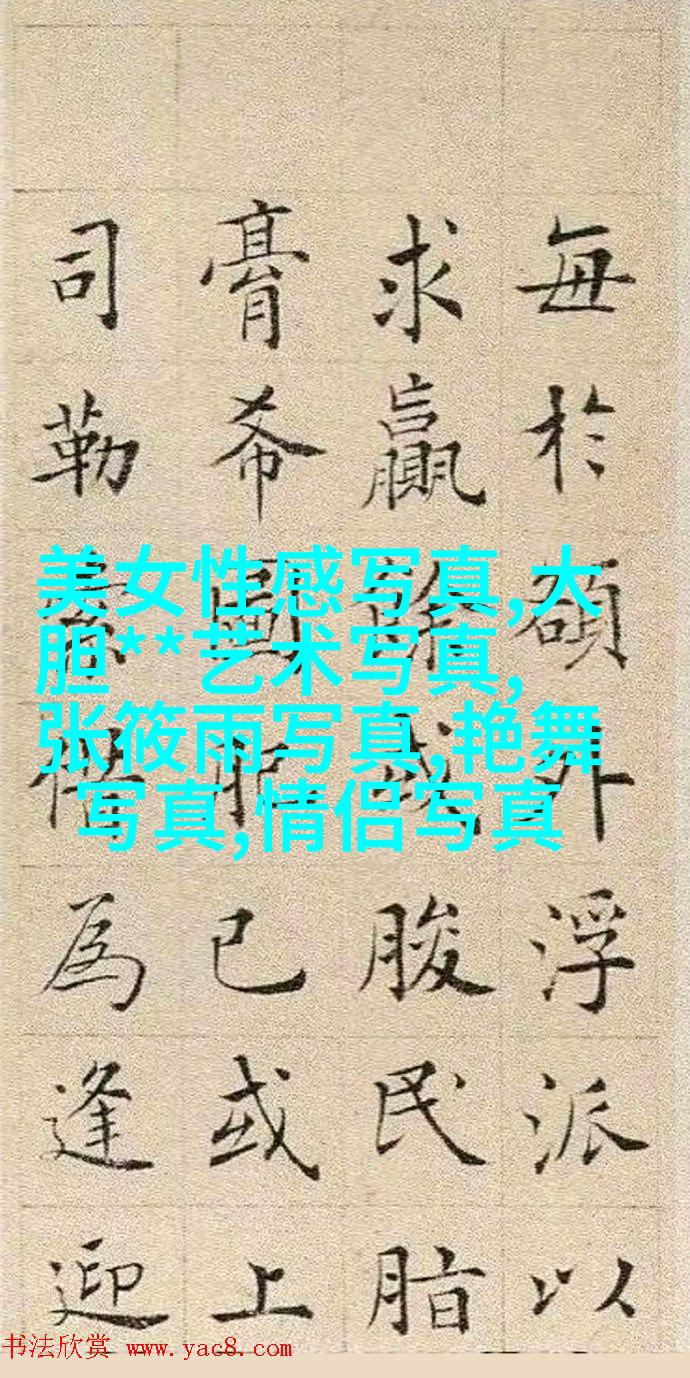 每於碩外浮派以
求贏餘或朘民脂
膏希圖肥已或上
司勒索為逢迎
美女性感写真,大
胆**艺术写真,
张筱雨写真,艳舞
写真,情侣写真
书法欣赏 www.yac8.com